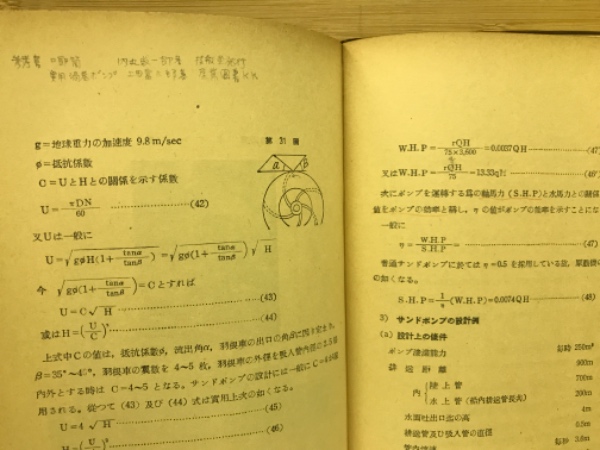 g=地球重力の加速度 9.8 m/sec
第 31 図
ø=抵抗係数
C=UとHとの關係を示す係数
U= πDN/60 ……(42)
又Uは一般に
U=√gøH(1+ tanα/tanβ) =√gø(1+ tanα/tanβ) √H
今 √gø(1+ tanα/tanβ) =C とすれば
U=C√H ……(43)
或は H=(U/C)² ……(44)
上式中Cの値は、抵抗係数ø, 流出角α, 羽根車の出口の角βに
β=35°~4 羽根車の翼数を 4~5 枚, 羽根車の外徑を吸入管内徑の
内外とする時は C=4~5 となる。サンドポンプの設計には一般に C=4
用される。從つて (43) 及び (44) 式は實用上次の如くなる。
U=4 √H ……(45)
H=(U/ )² ……(46)
W.H.P= rQH/75×3,600 =0.0037QH ……(47
又はW.H.P= /75 =13.33qh ……(46
次にポンプを運轉する爲の軸馬力 (S.H.P)と水馬力との關係
値をポンプの効率と稱し、ηの値がポンプの効率を示すことにな
一般に
η= W.H.P/S.H.P = ……(47)
普通サンドポンプに於ては η=0.5 を採用している故,
の如くなる。
S.H.P= 1/η (W.H.P)=0.0074QH ……(48)
3) サンドポンプの設計例
(a) 設計上の條件
ポンプ浚渫能力 毎時 250m³
排送距離 900m
内 陸上管 700m
水上管 (船内排送管長共) 200m
水面吐出口迄の高 4m
排送管及び吸入管の直徑
管内流速